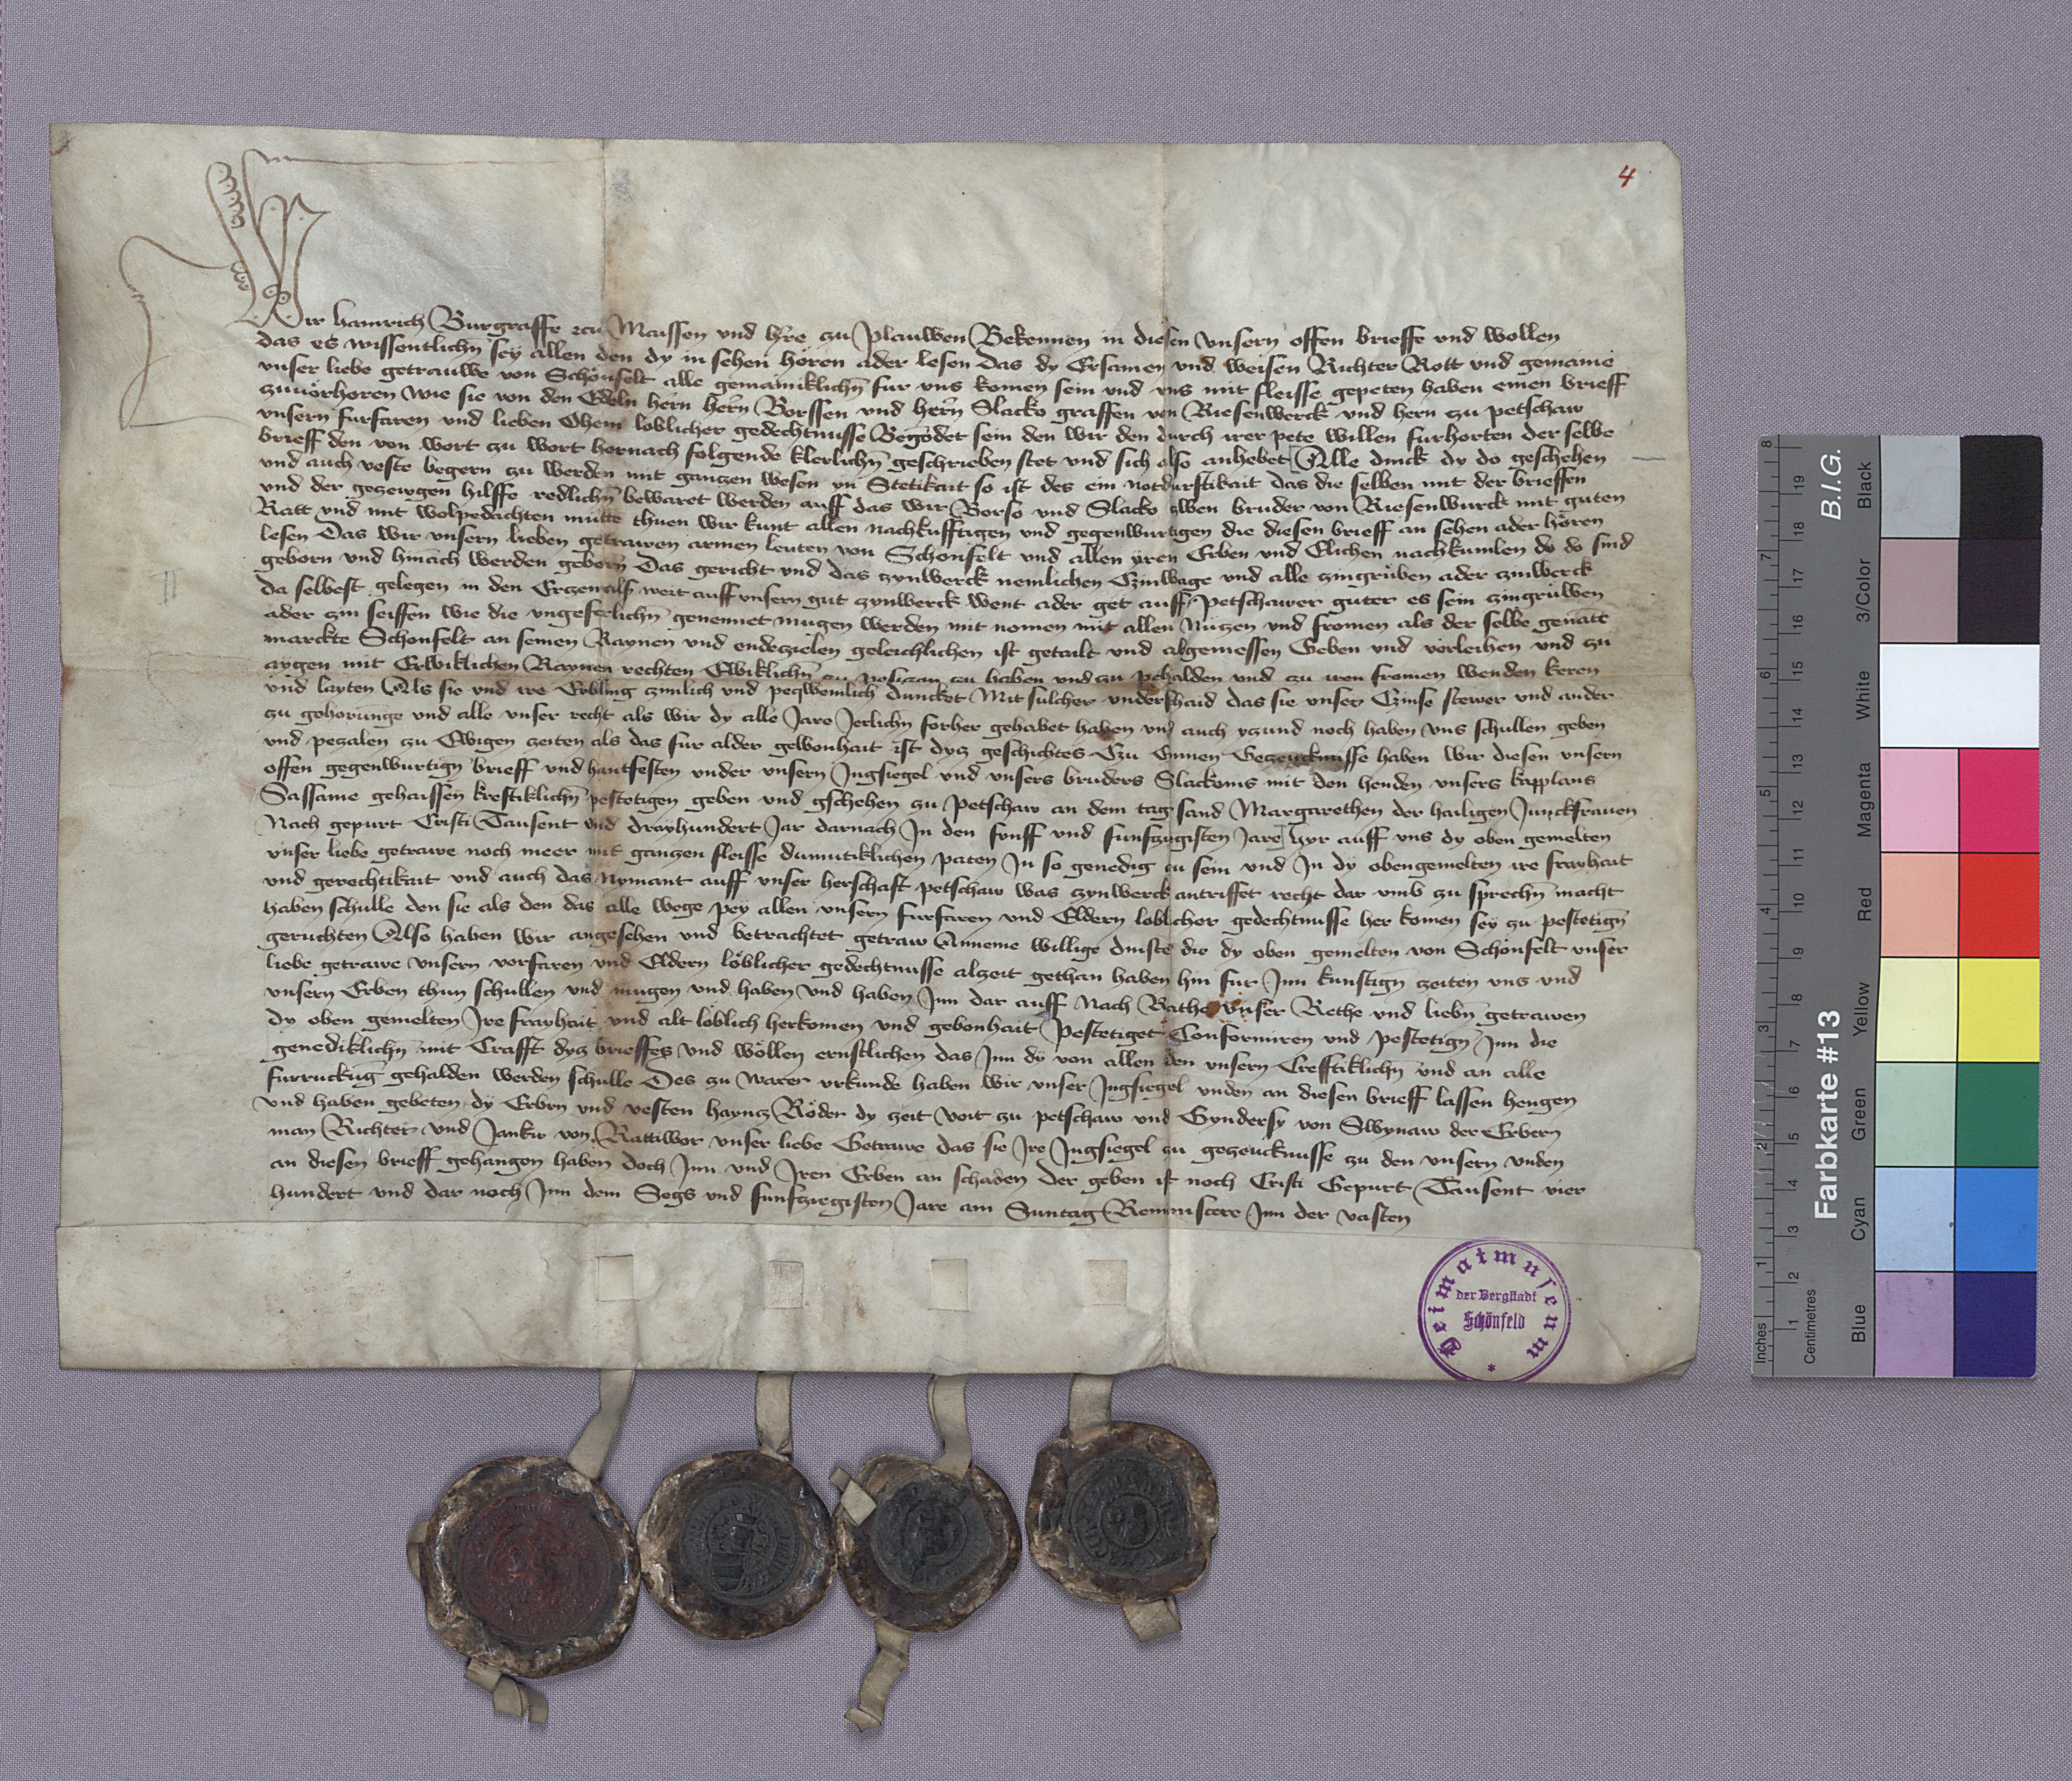 4
Wir hainrich Burgraffe zcu Maissen und hre zu plauwen Bekennen in diesen unsern offen brieffe und wollen
das es wissentlichn sey allen den dy in sehen horen ader lesen Das dy Ersamen und weisen Richter Rott und gemaine
unser liebe getrauwe von Schönfelt alle gemainiklichn fur uns komen sein und uns mit fleisse gepeten haben einen brieff
zuuorhoren wie sie von den Edeln hern hern Borssen und hern Slacko graffen von Riesenwerck und hern zu petschaw
unsern furfaren und lieben Ohem loblicher gedechtnusse Begodet sein den wir den durch irer pete willen furhorten der selbe
brieff den von wort zu wort hernach folgende klerlichn geschrieben stet und sich also anhebet Alle dinck dy do geschehen
und auch veste begern zu werden mit ganzen wesen un Stetikait so ist des ein notdurftikait das die selben mit der brieffen
und der gezewgen hilffe redlichn bewaret werden auff das wir Borso und Slacko gben bruder von Riesenwurck mit guten
Ratt und mit wolpedachten mutte thuen wir kunt allen nachkufftigen und gegenwurtigen die diesen brieff an sehen ader hören
lesen Das wir unsern lieben getrawen armen leuten von Schonfelt und allen yren Erben und Elichen nachkumlen dy do sind
geborn und hinach werden geborn Das gericht und das zynwerck nemlichen Czinwage und alle zingruben ader zinwerck
da selbest gelegen in den Erczen als weit auff unsern gut zynwerck went ader get auff petschawer guter es sein zingruben
ader zin seiffen wie die ungeferlichn genennet mugen werden mit nomen mit allen Nutzen und fromen als der selbe genatt
marckte Schonfelt an seinen Raynen und endezielen geleichlichen ist getailt und abgemessen Geben und vorleihen und zu
aygen mit Erwiklichen Raynen rechten Ewiklichn zu posizen zu haben und zu pehalden und zu iren fromen wenden keren
und layten Als sie und ire Erbling zimlich und peqwemlich duncket Mit sulcher underschaid das sie unser Czinse stewer und ander
zu gehorunge und alle unser recht als wir dy alle Jare Jerlichn forher gehabet haben und auch yzund noch haben uns schullen geben
und pezalen zu Ewigen zeiten als das fur alder gewonhait ist dyz geschichtes Czu Einnen Gezeucknusse haben wir diesen unsern
offen gegenwurtign brieff und hantfesten under unsern Jngsiegel und unsers bruders Slackonis mit den henden unsers kapplans
Sassame gehaissen kreftiklichn pestetigen geben und gschehen zu petschaw an dem tag sand Margarethen der hailigen Junckfrauen
Nach gepurt Cristi Tausent und drayhundert Jar darnach Jn den funff und funfzugisten Jare hyr auff uns dy oben gemelten
unser liebe getrawe noch meer mit ganzen fleisse dumutiklichen paten Jn so genedig zu sein und Jn dy obengemelten ire frayhait
und gerechtikait und auch das Nymant auff unser herschaft petschaw was zynwerck antriffet recht dar umb zu sprechn macht
haben schulle den sie als den das alle wege pey allen unsern furfaren und Eldern loblicher gedechtnusse her komen sey zu pestetign
geruchten Also haben wir angesehen und betrachtet getraw Anneme willige dinste die dy oben gemelten von Schonfelt unser
liebe getrawe unsern vorfaren und Eldern löblicher gedechtnusse alzeit gethan haben hin fur Jnn kunftign zeiten uns und
unsern Erben thun schullen und mugen und haben und haben Jnn dar auff Nach Rathe unser Rethe und liebn getrawen
dy oben gemelten Jre frayhait und alt loblich herkomen und gebonhait pestetiget Conformiren und pestetign Jnn die
genediklichn mit Crafft dyz brieffes und wöllen ernstlichen das Jnn dy von allen den unsern Crefftiklichn und an alle
furruckug gehalden werden schulle Des zu warer urkunde haben wir unser Jngsiegel unden an diesen brieff lassen hengen
und haben gebeten dy Erbrn und vesten haynz Röder dy zeit voit zu petschaw und Gyndersy von Swynaw der Erbern
man Richter und Janko von Rattiwor unser liebe Getrawe das sie Jre Jngsiegel zu gezeucknusse zu den unsern unden
an diesen brieff gehangen haben doch Jnn und Jren Erben an schaden Der geben ist noch Cristi Gepurt Tausent vier
hundert und dar noch Jnn dem Segs und funfzegisten Jare am Suntag Reminiscere Jnn der vasten
Heimatmuseum
der Bergstadt
Schönfeld
*
Farbkarte #13
B.I.G.
Inches
Centimetres
1 2 3 4 5 6 7 8
1 2 3 4 5 6 7 8 9 10 11 12 13 14 15 16 17 18 19
Blue
Cyan
Green
Yellow
Red
Magenta
White
3/Color
Black